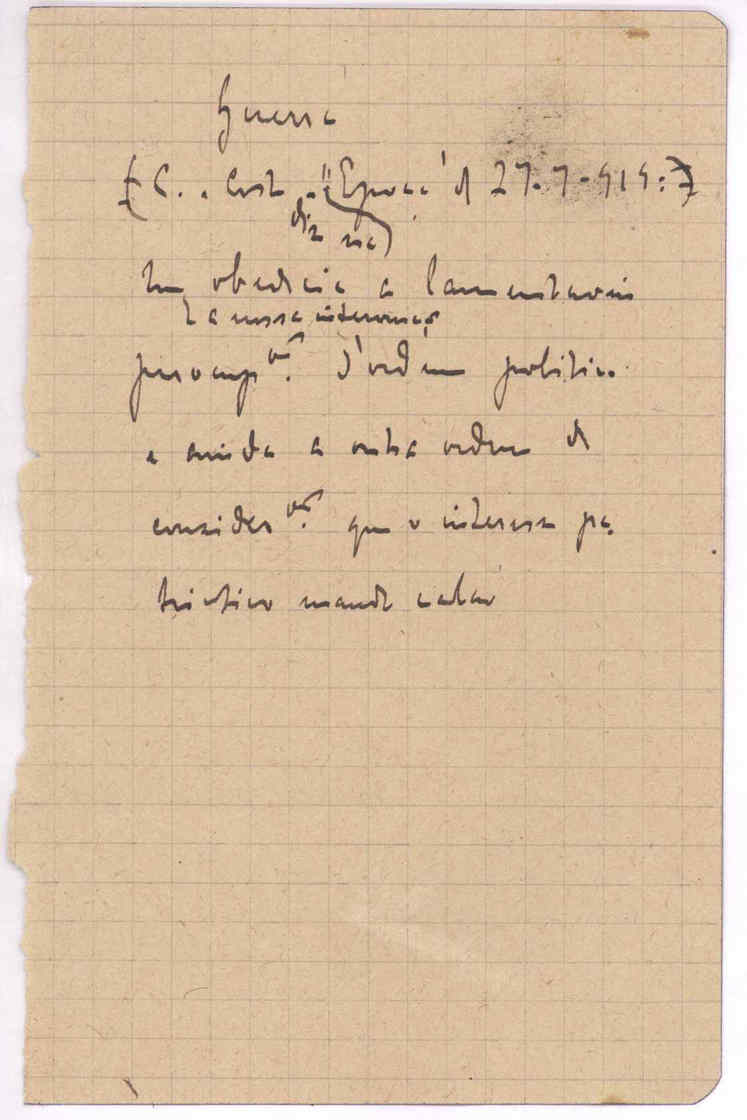 Guerra
(C. . Costa . "Epoca" d 27-7-919:)
diz na
obedecia a lamentaveis
a nossa intervenção
preocupões. d'ordem politica
e ainda a outra ordem de
considerões. que o interesse pa-
triotico manda calar